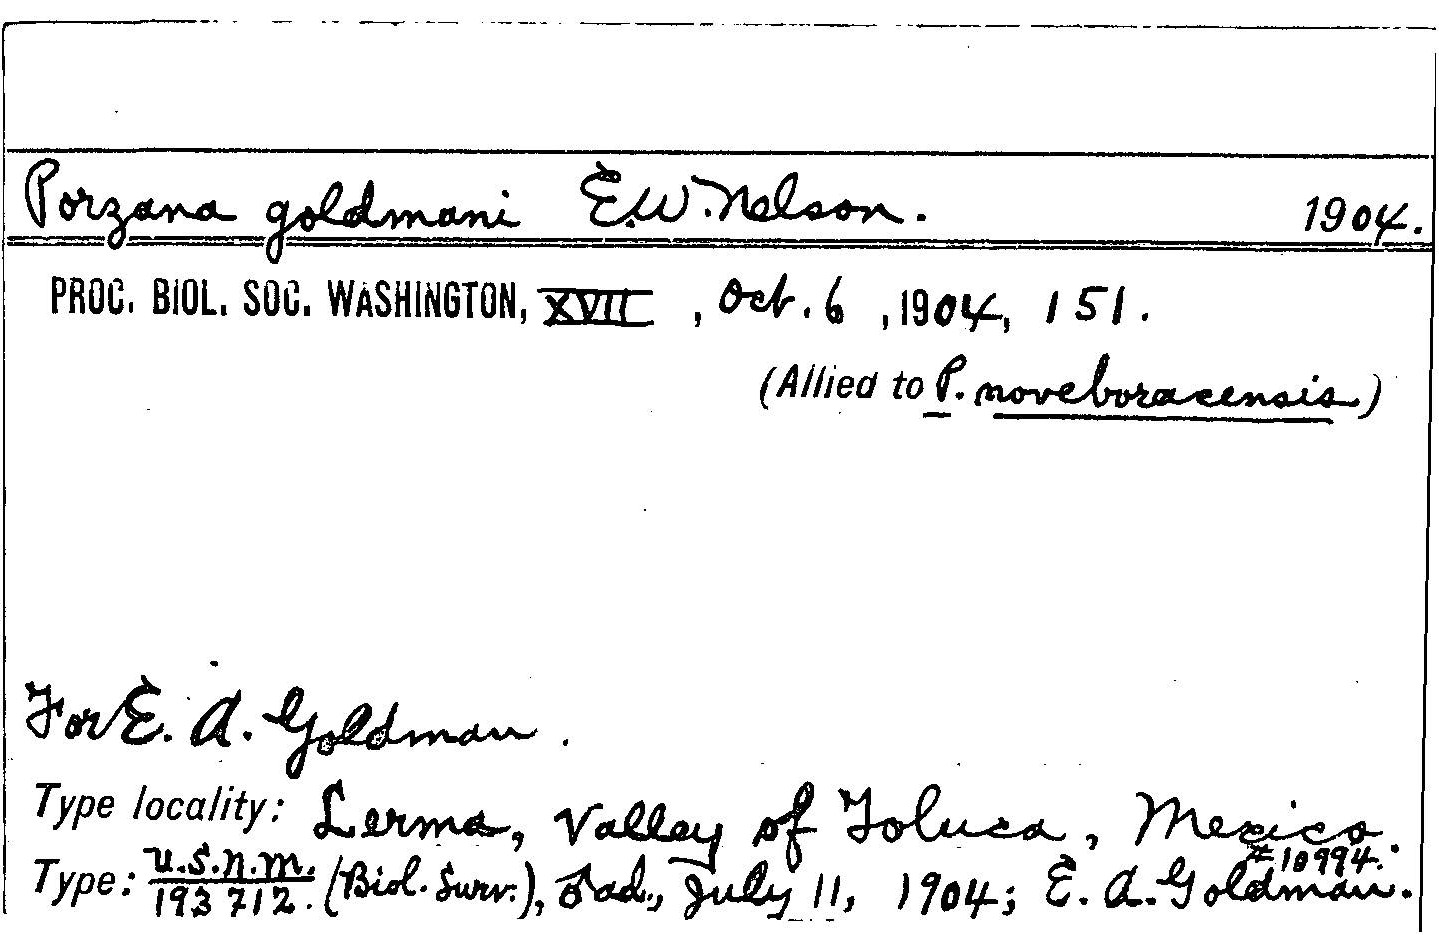 Porzana goldmani E.W. Nelson. 1904.
PROC. BIOL. SOC. WASHINGTON, XVII, Oct. 6, 1904, 151.
(Allied to P. noveboracensis)
For E. A. Goldman.
Type locality: Lerma, Valley of Toluca, Mexico.
#10994.
Type: U.S.N.M. 193712. (Biol. Surv.), ♂ ad., July 11, 1904; E. A. Goldman.